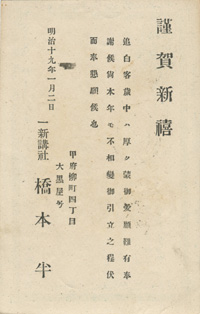 謹賀新禧
追白客歳中ハ厚ク蒙御愛顧難有奉
謝候尚本年モ不相變御引立之程伏
而奉懇願候也
明治十九年一月二日
甲府柳町四丁目
大黒屋
一新講社
橋本半